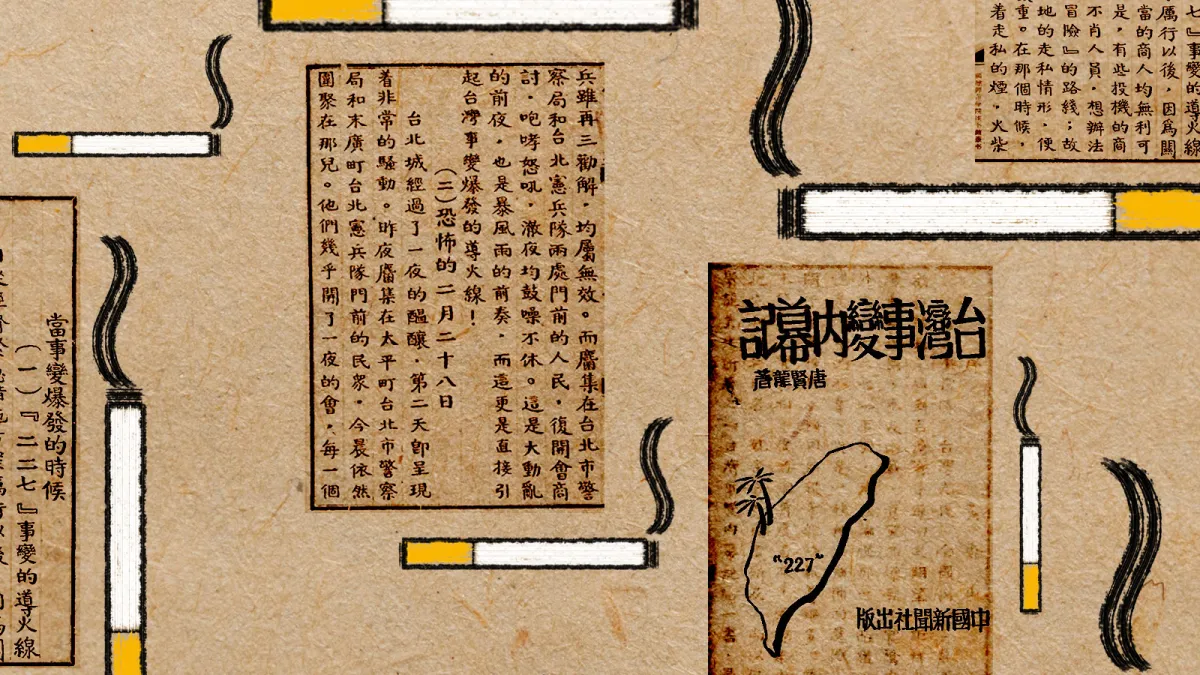 七』事變的導火線
厲行以後．因爲關
當的商人均無利可
是．有些投機的商
不肖人員．想辦法
冒險』的路綫；故
地的走私情形．便
重。在那個時候．
着走私的煙．火柴
兵雖再三勸解．均屬無效。而麕集在台北市警
察局和台北憲兵隊兩處門前的人民．復開會商
討．咆哮怒吼．澈夜均鼓噪不休。這是大動亂
的前夜．也是暴風雨的前奏．而這更是直接引
起台灣事變爆發的導火線！
（二）恐怖的二月二十八日
台北城經過了一夜的醞釀．第二天卽呈現
着非常的騷動。昨夜麕集在太平町台北市警察
局和末廣町台北憲兵隊門前的民衆．今晨依然
圍聚在那兒。他們幾乎開了一夜的會．每一個
台灣事變內幕記
唐賢龍著
"227"
中國新聞社出版
當事變爆發的時候
（一）『二二七』事變的導火線